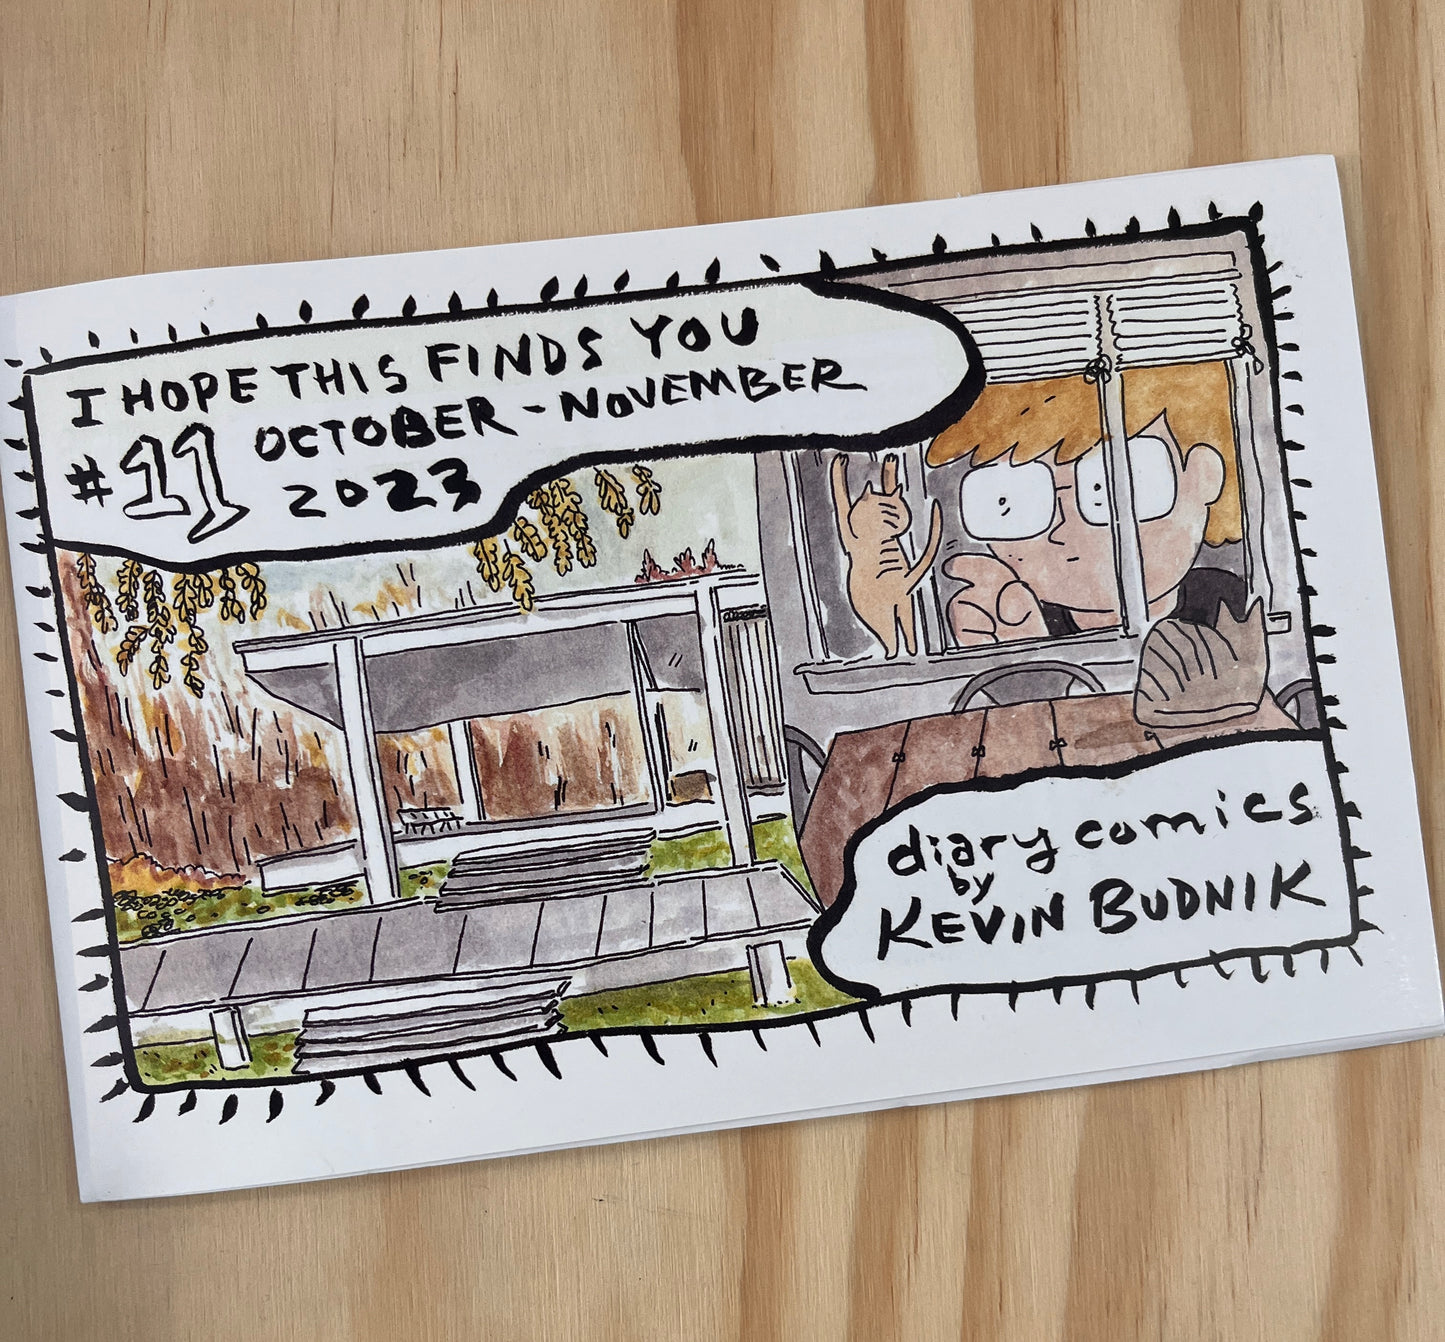 I HOPE THIS FINDS YOU
#11 OCTOBER - NOVEMBER
2023
diary comics
by
KEVIN BUDNIK